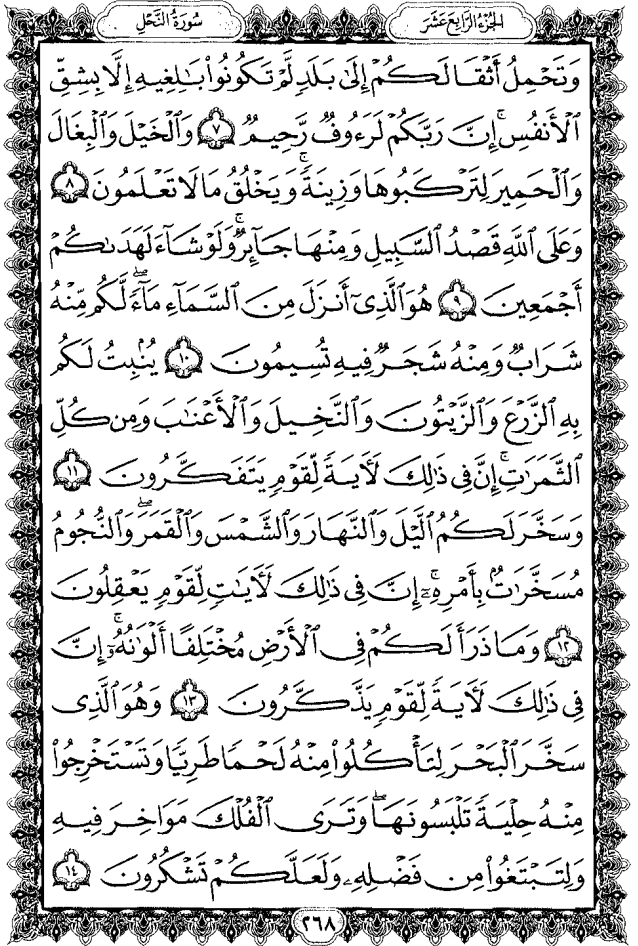 سُورَةُ النَّحْلِ
الجُزْءُ الرَّابِعَ عَشَرَ
وَتَحْمِلُ أَثْقَالَكُمْ إِلَىٰ بَلَدٍ لَّمْ تَكُونُوا۟ بَٰلِغِيهِ إِلَّا بِشِقِّ
ٱلْأَنفُسِ ۚ إِنَّ رَبَّكُمْ لَرَءُوفٌ رَّحِيمٌ ٧ وَٱلْخَيْلَ وَٱلْبِغَالَ
وَٱلْحَمِيرَ لِتَرْكَبُوهَا وَزِينَةً ۚ وَيَخْلُقُ مَا لَا تَعْلَمُونَ ٨
وَعَلَى ٱللَّهِ قَصْدُ ٱلسَّبِيلِ وَمِنْهَا جَآئِرٌ ۚ وَلَوْ شَآءَ لَهَدَىٰكُمْ
أَجْمَعِينَ ٩ هُوَ ٱلَّذِىٓ أَنزَلَ مِنَ ٱلسَّمَآءِ مَآءً ۖ لَّكُم مِّنْهُ
شَرَابٌ وَمِنْهُ شَجَرٌ فِيهِ تُسِيمُونَ ١٠ يُنۢبِتُ لَكُم
بِهِ ٱلزَّرْعَ وَٱلزَّيْتُونَ وَٱلنَّخِيلَ وَٱلْأَعْنَٰبَ وَمِن كُلِّ
ٱلثَّمَرَٰتِ ۗ إِنَّ فِى ذَٰلِكَ لَءَايَةً لِّقَوْمٍ يَتَفَكَّرُونَ ١١
وَسَخَّرَ لَكُمُ ٱلَّيْلَ وَٱلنَّهَارَ وَٱلشَّمْسَ وَٱلْقَمَرَ ۖ وَٱلنُّجُومُ
مُسَخَّرَٰتٌۢ بِأَمْرِهِۦٓ ۗ إِنَّ فِى ذَٰلِكَ لَءَايَٰتٍ لِّقَوْمٍ يَعْقِلُونَ
١٢ وَمَا ذَرَأَ لَكُمْ فِى ٱلْأَرْضِ مُخْتَلِفًا أَلْوَٰنُهُۥٓ ۗ إِنَّ
فِى ذَٰلِكَ لَءَايَةً لِّقَوْمٍ يَذَّكَّرُونَ ١٣ وَهُوَ ٱلَّذِى
سَخَّرَ ٱلْبَحْرَ لِتَأْكُلُوا۟ مِنْهُ لَحْمًا طَرِيًّا وَتَسْتَخْرِجُوا۟
مِنْهُ حِلْيَةً تَلْبَسُونَهَا ۖ وَتَرَى ٱلْفُلْكَ مَوَاخِرَ فِيهِ
وَلِتَبْتَغُوا۟ مِن فَضْلِهِۦ وَلَعَلَّكُمْ تَشْكُرُونَ ١٤
٢٦٨